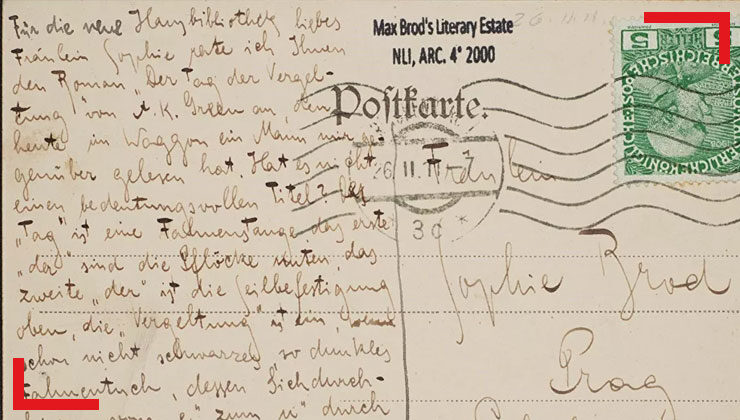 Für die neue Hausbibliothek liebes
Fräulein Sophie rate ich Ihnen
den Roman „Der Tag der Vergel-
tung" von A. K. Green an, den
heute im Waggon ein Mann mir ge-
genüber gelesen hat. Hat es nicht
einen bedeutungsvollen Titel? Der
„Tag" ist eine Fahnenstange das erste
„der" sind die Pflöcke unten, das
zweite „der" ist die Seilbefestigung
oben, die „Vergeltung" ist ein, wenn
schon nicht schwarzes, so dunkles
Fahnentuch, dessen Sichdurch-
zum „u" durch
Max Brod's Literary Estate
NLI, ARC. 4° 2000
Postkarte.
26 II 11
3c *
5 5
Fräulein
Sophie Brod
Prag